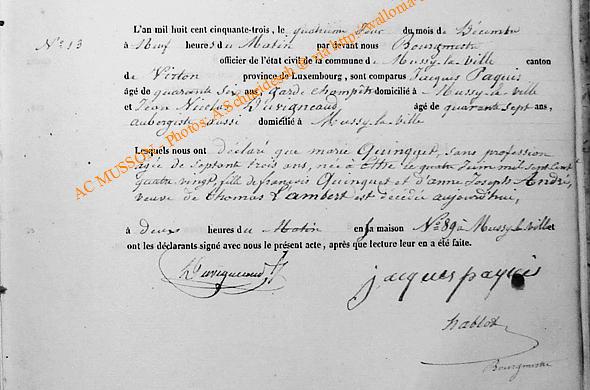 L'an mil huit cent cinquante-trois, le quatrième jour du mois de Décembre
N.º 13
à Neuf heures du Matin par devant nous Bourgmestre
officier de l'état civil de la commune de Mussy-la-ville canton
de Virton province de Luxembourg, sont comparus Jacques Paquis
âgé de quarante six ans, Garde champêtre domicilié à Mussy-la-ville
et Jean Nicolas Duvigneaud âgé de quarante sept ans,
aubergiste aussi domicilié à Mussy-la-ville
Lesquels nous ont déclaré que marie Quinquet, sans profession
agée de septante trois ans, née à Ethe le quatre Juin mil sept Cent
quatre vingt, fille de françois Quinquet et d'anne Josephe André,
veuve de Thomas Lambert est décédée aujourd'hui,
à deux heures du Matin en sa maison N.º 89 à Mussy-la-ville et
ont les déclarants signé avec nous le présent acte, après que lecture leur en a été faite.
Duvigneaud
jacques paquis
hablot
Bourgmestre
AC MUSSON - Photos: A Schneidesch @ via http://wallonia